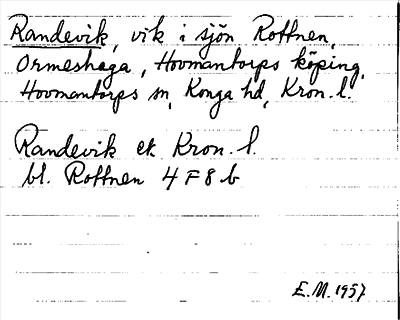 Randevik, vik i sjön Rottnen,
Ormeshaga, Hovmantorps köping,
Hovmantorps sn, Konga hd, Kron. l.
Randevik ek Kron. l.
bl. Rottnen 4 F 8 b
E.M. 1957